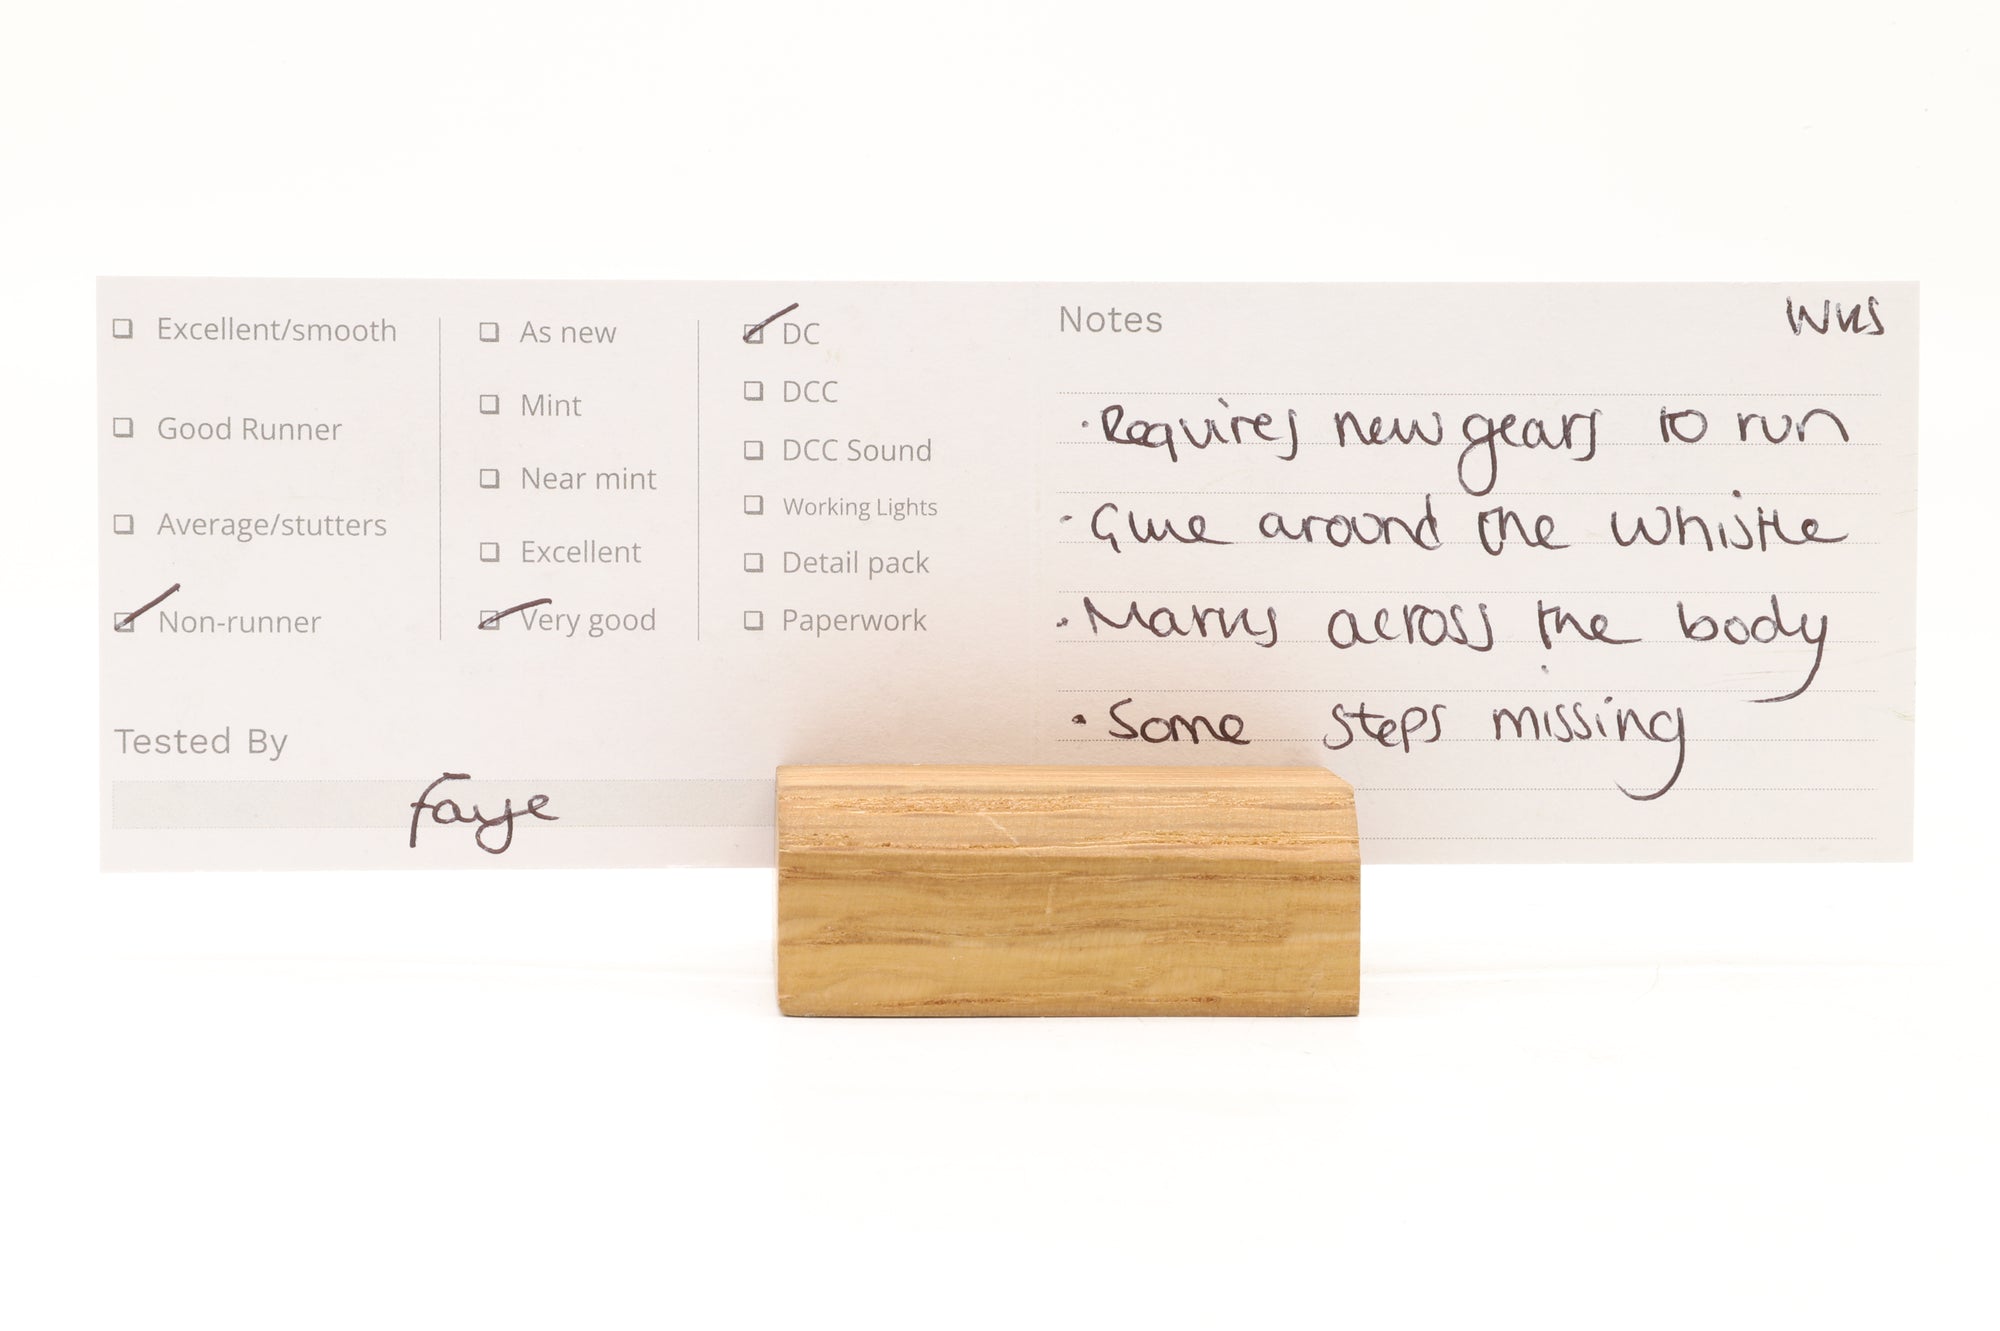 Excellent/smooth
Good Runner
Average/stutters
Non-runner
As new
Mint
Near mint
Excellent
Very good
DC
DCC
DCC Sound
Working Lights
Detail pack
Paperwork
Tested By
Faye
Notes
· Requires new gears to run
· Glue around the whistle
· Marks across the body
· Some steps missing